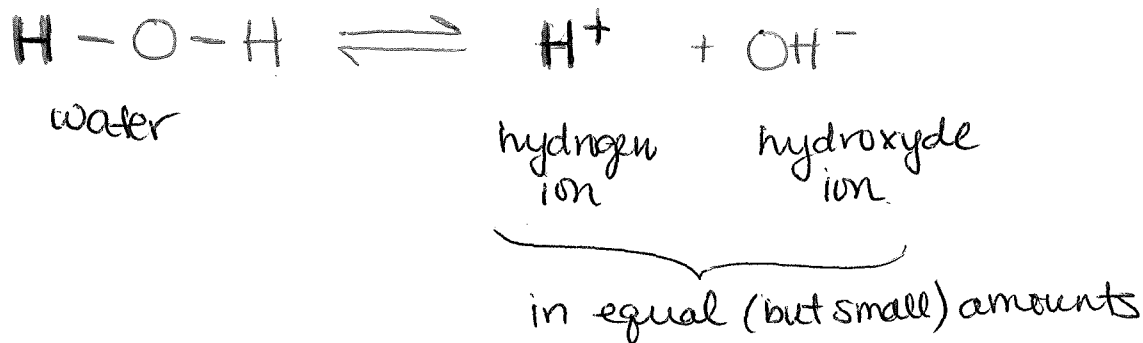 H – O – H ⇌ H⁺ + OH⁻
water
hydrogen hydroxyde
ion ion
in equal (but small) amounts